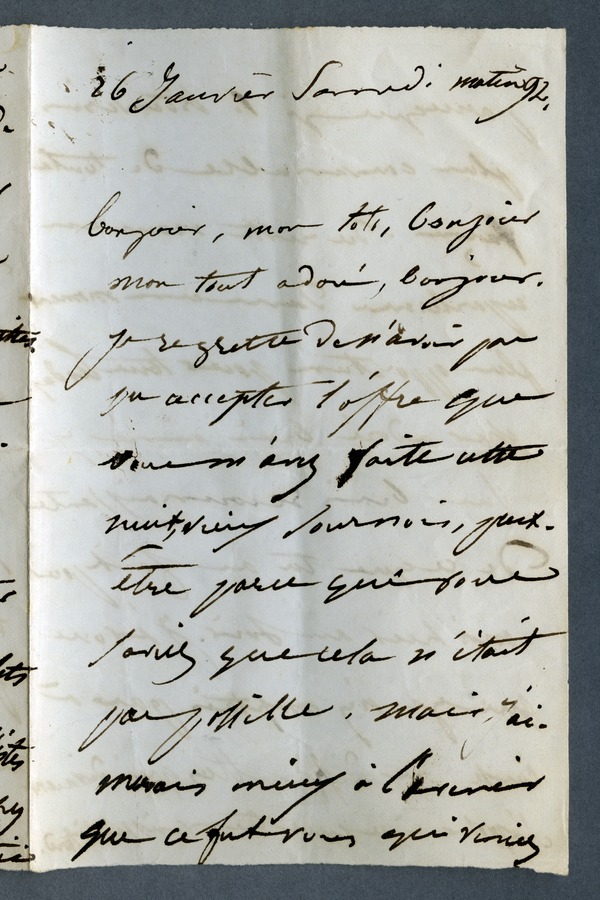 26 Janvier Samedi matin 9h.
bonjour, mon toto, bonjour
mon tout adoré, bonjour.
je regrette de n'avoir pas
pu accepter l'offre que
vous m'avez faite cette
nuit, vieux sournois, peut-
être parce que vous
saviez que cela n'était
pas possible. mais j'ai-
merais mieux à l'avenir
que ce fut vous qui veniez